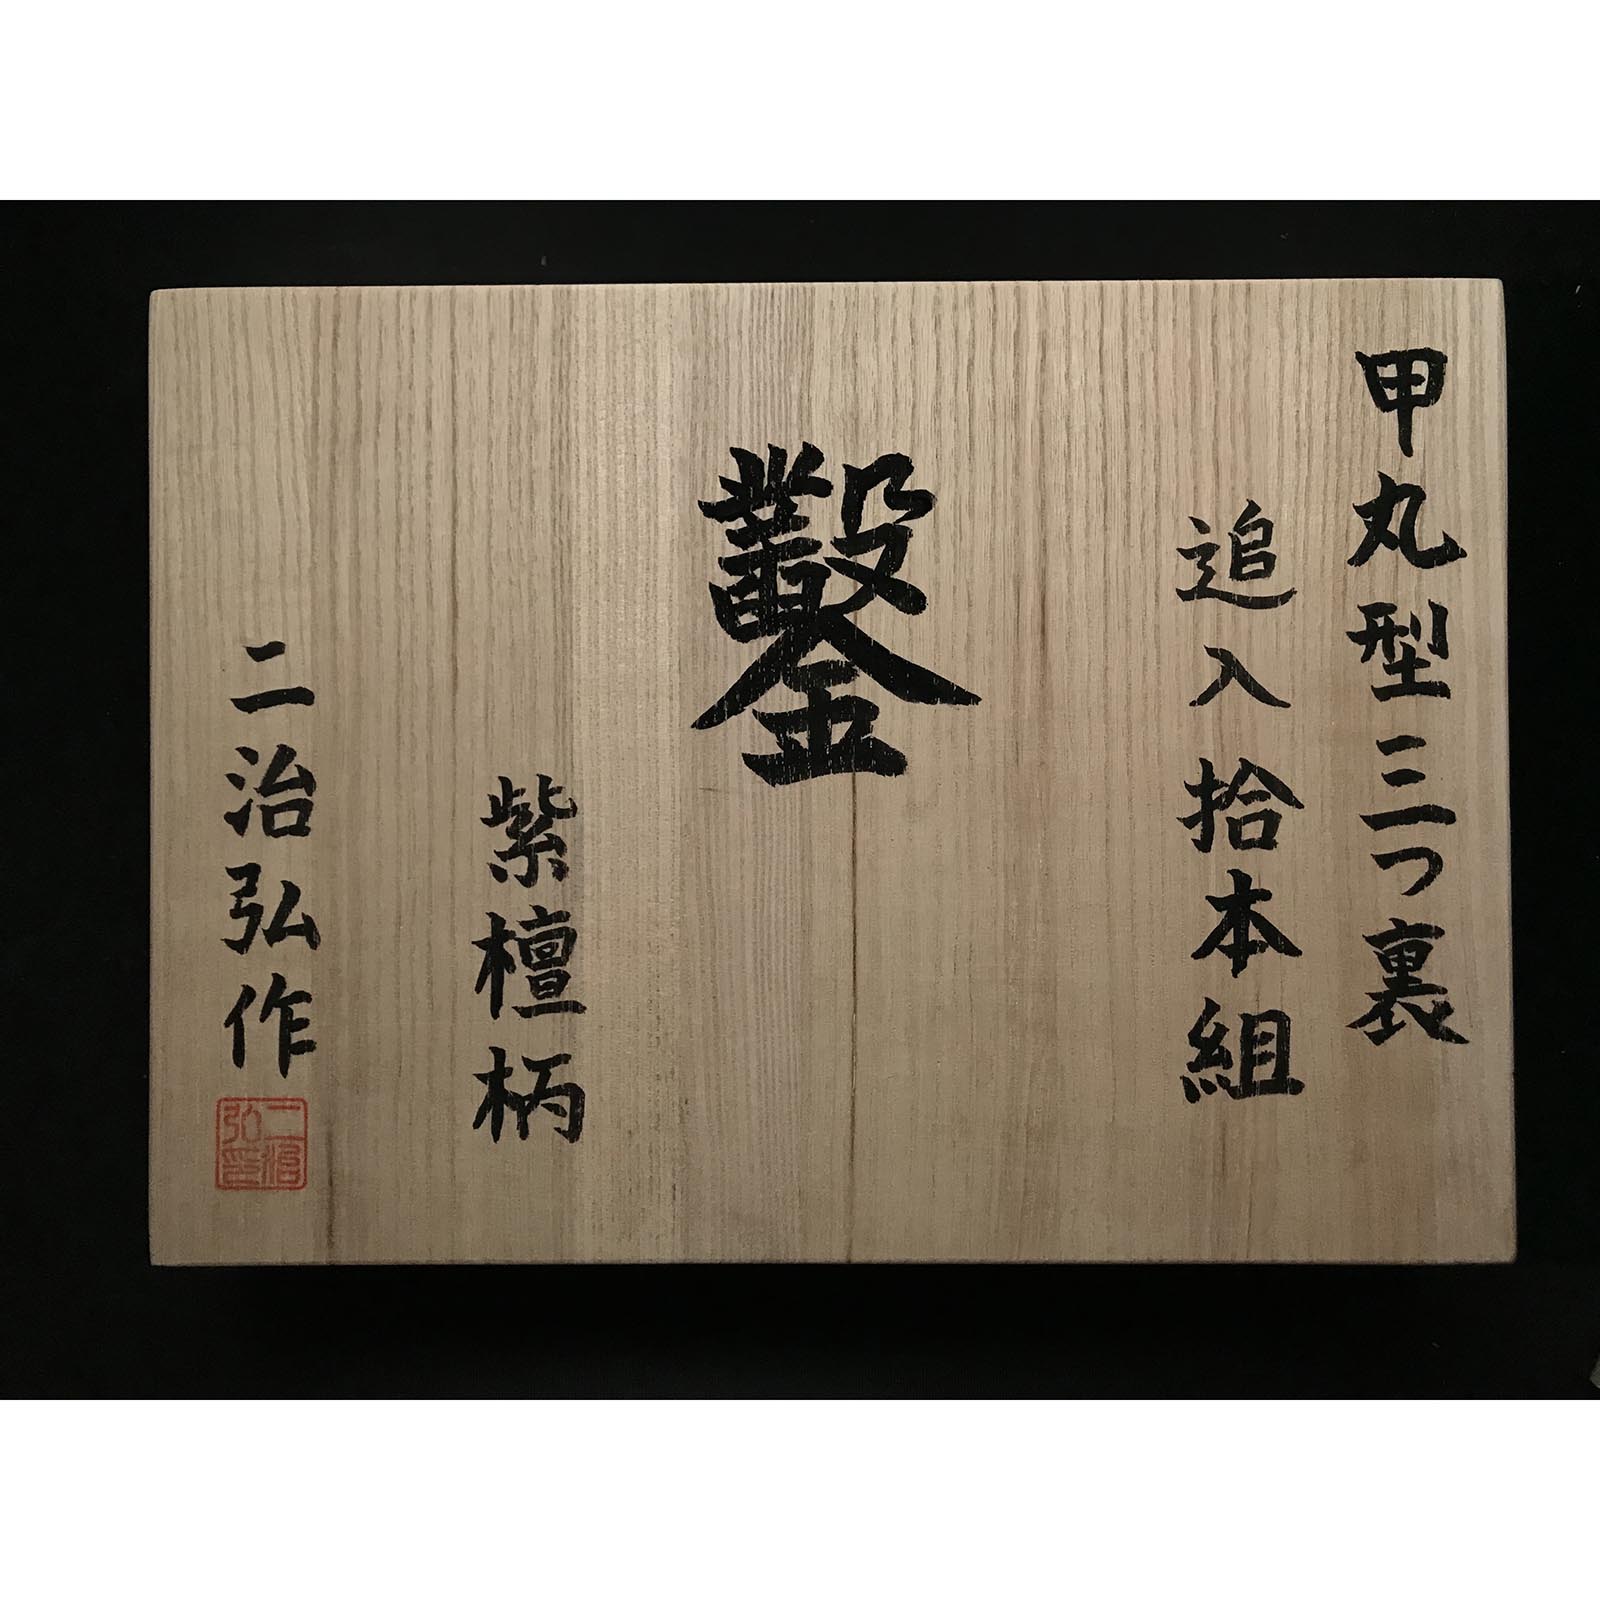 甲丸型三つ裏
追入拾本組
鑿
紫檀柄
二治弘作
二治
弘印